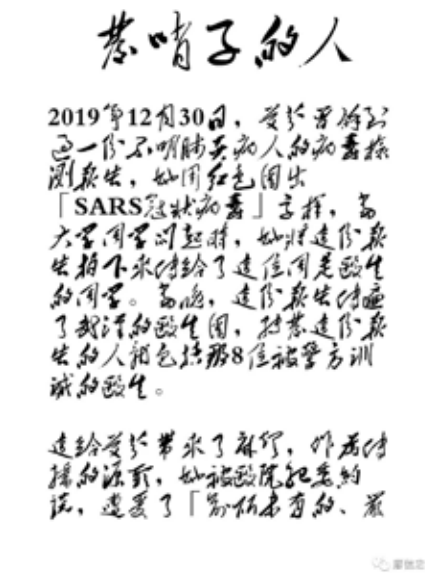 發哨子的人
2019年12月30日，艾芬曾拿到
過一份不明肺炎病人的病毒檢
測報告，她用紅色圈出
「SARS冠狀病毒」字樣，當
大學同學問起時，她將這份報
告拍下來傳給了這位同是醫生
的同學。當晚，這份報告傳遍
了武漢的醫生圈，轉發這份報
告的人就包括那8位被警方訓
誡的醫生。
這給艾芬帶來了麻煩，作為傳
播的源頭，她被醫院紀委約
談，遭受了「前所未有的、嚴